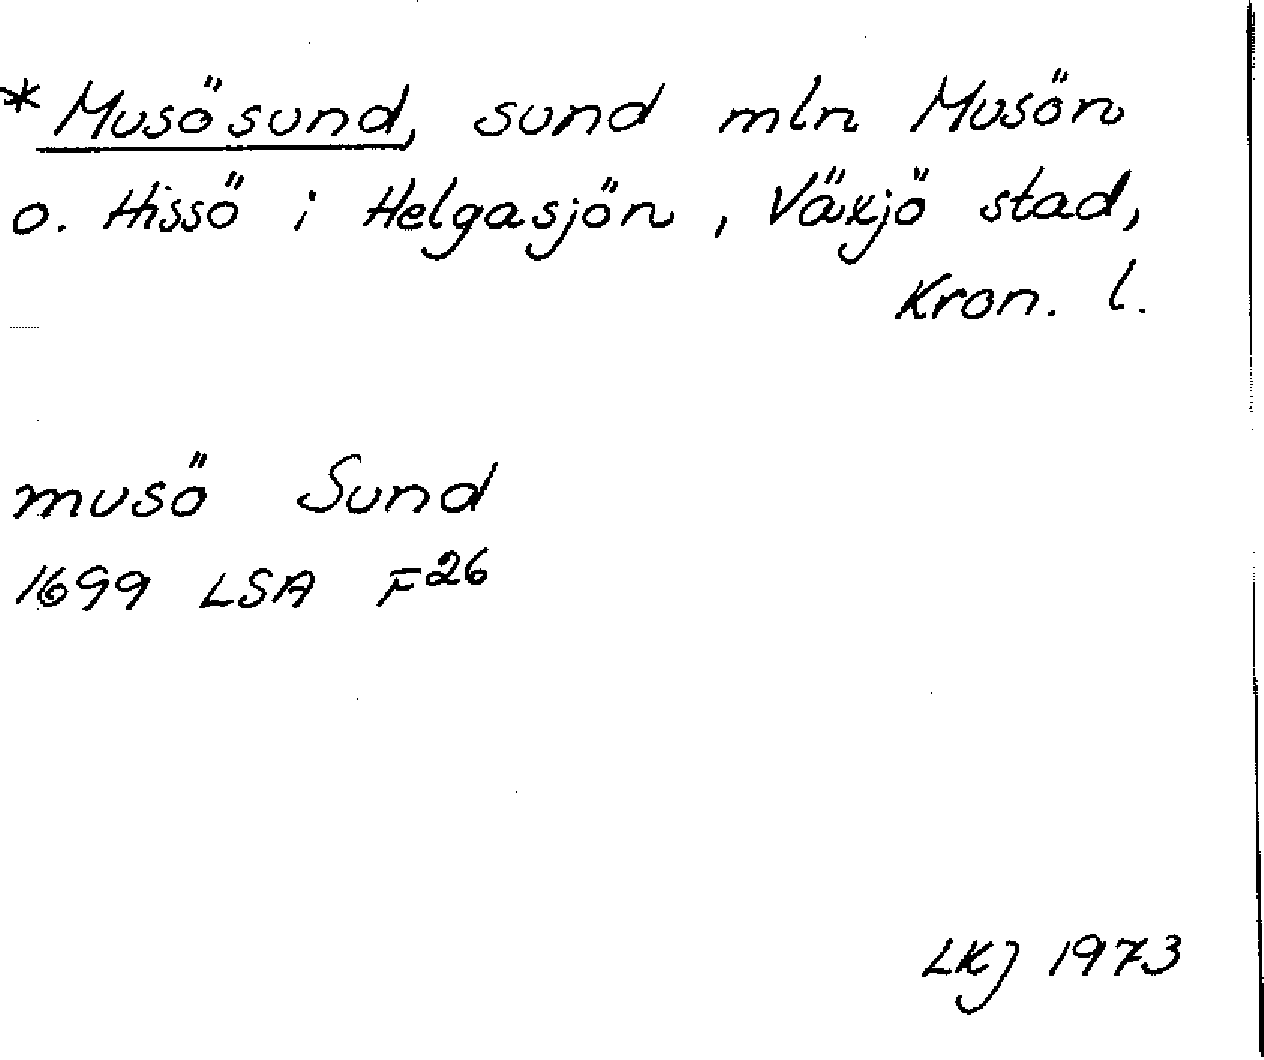 * Musösund, sund mln Musön
o. Hissö i Helgasjön, Växjö stad,
Kron. l.
musö Sund
1699 LSA F26
LKJ 1973